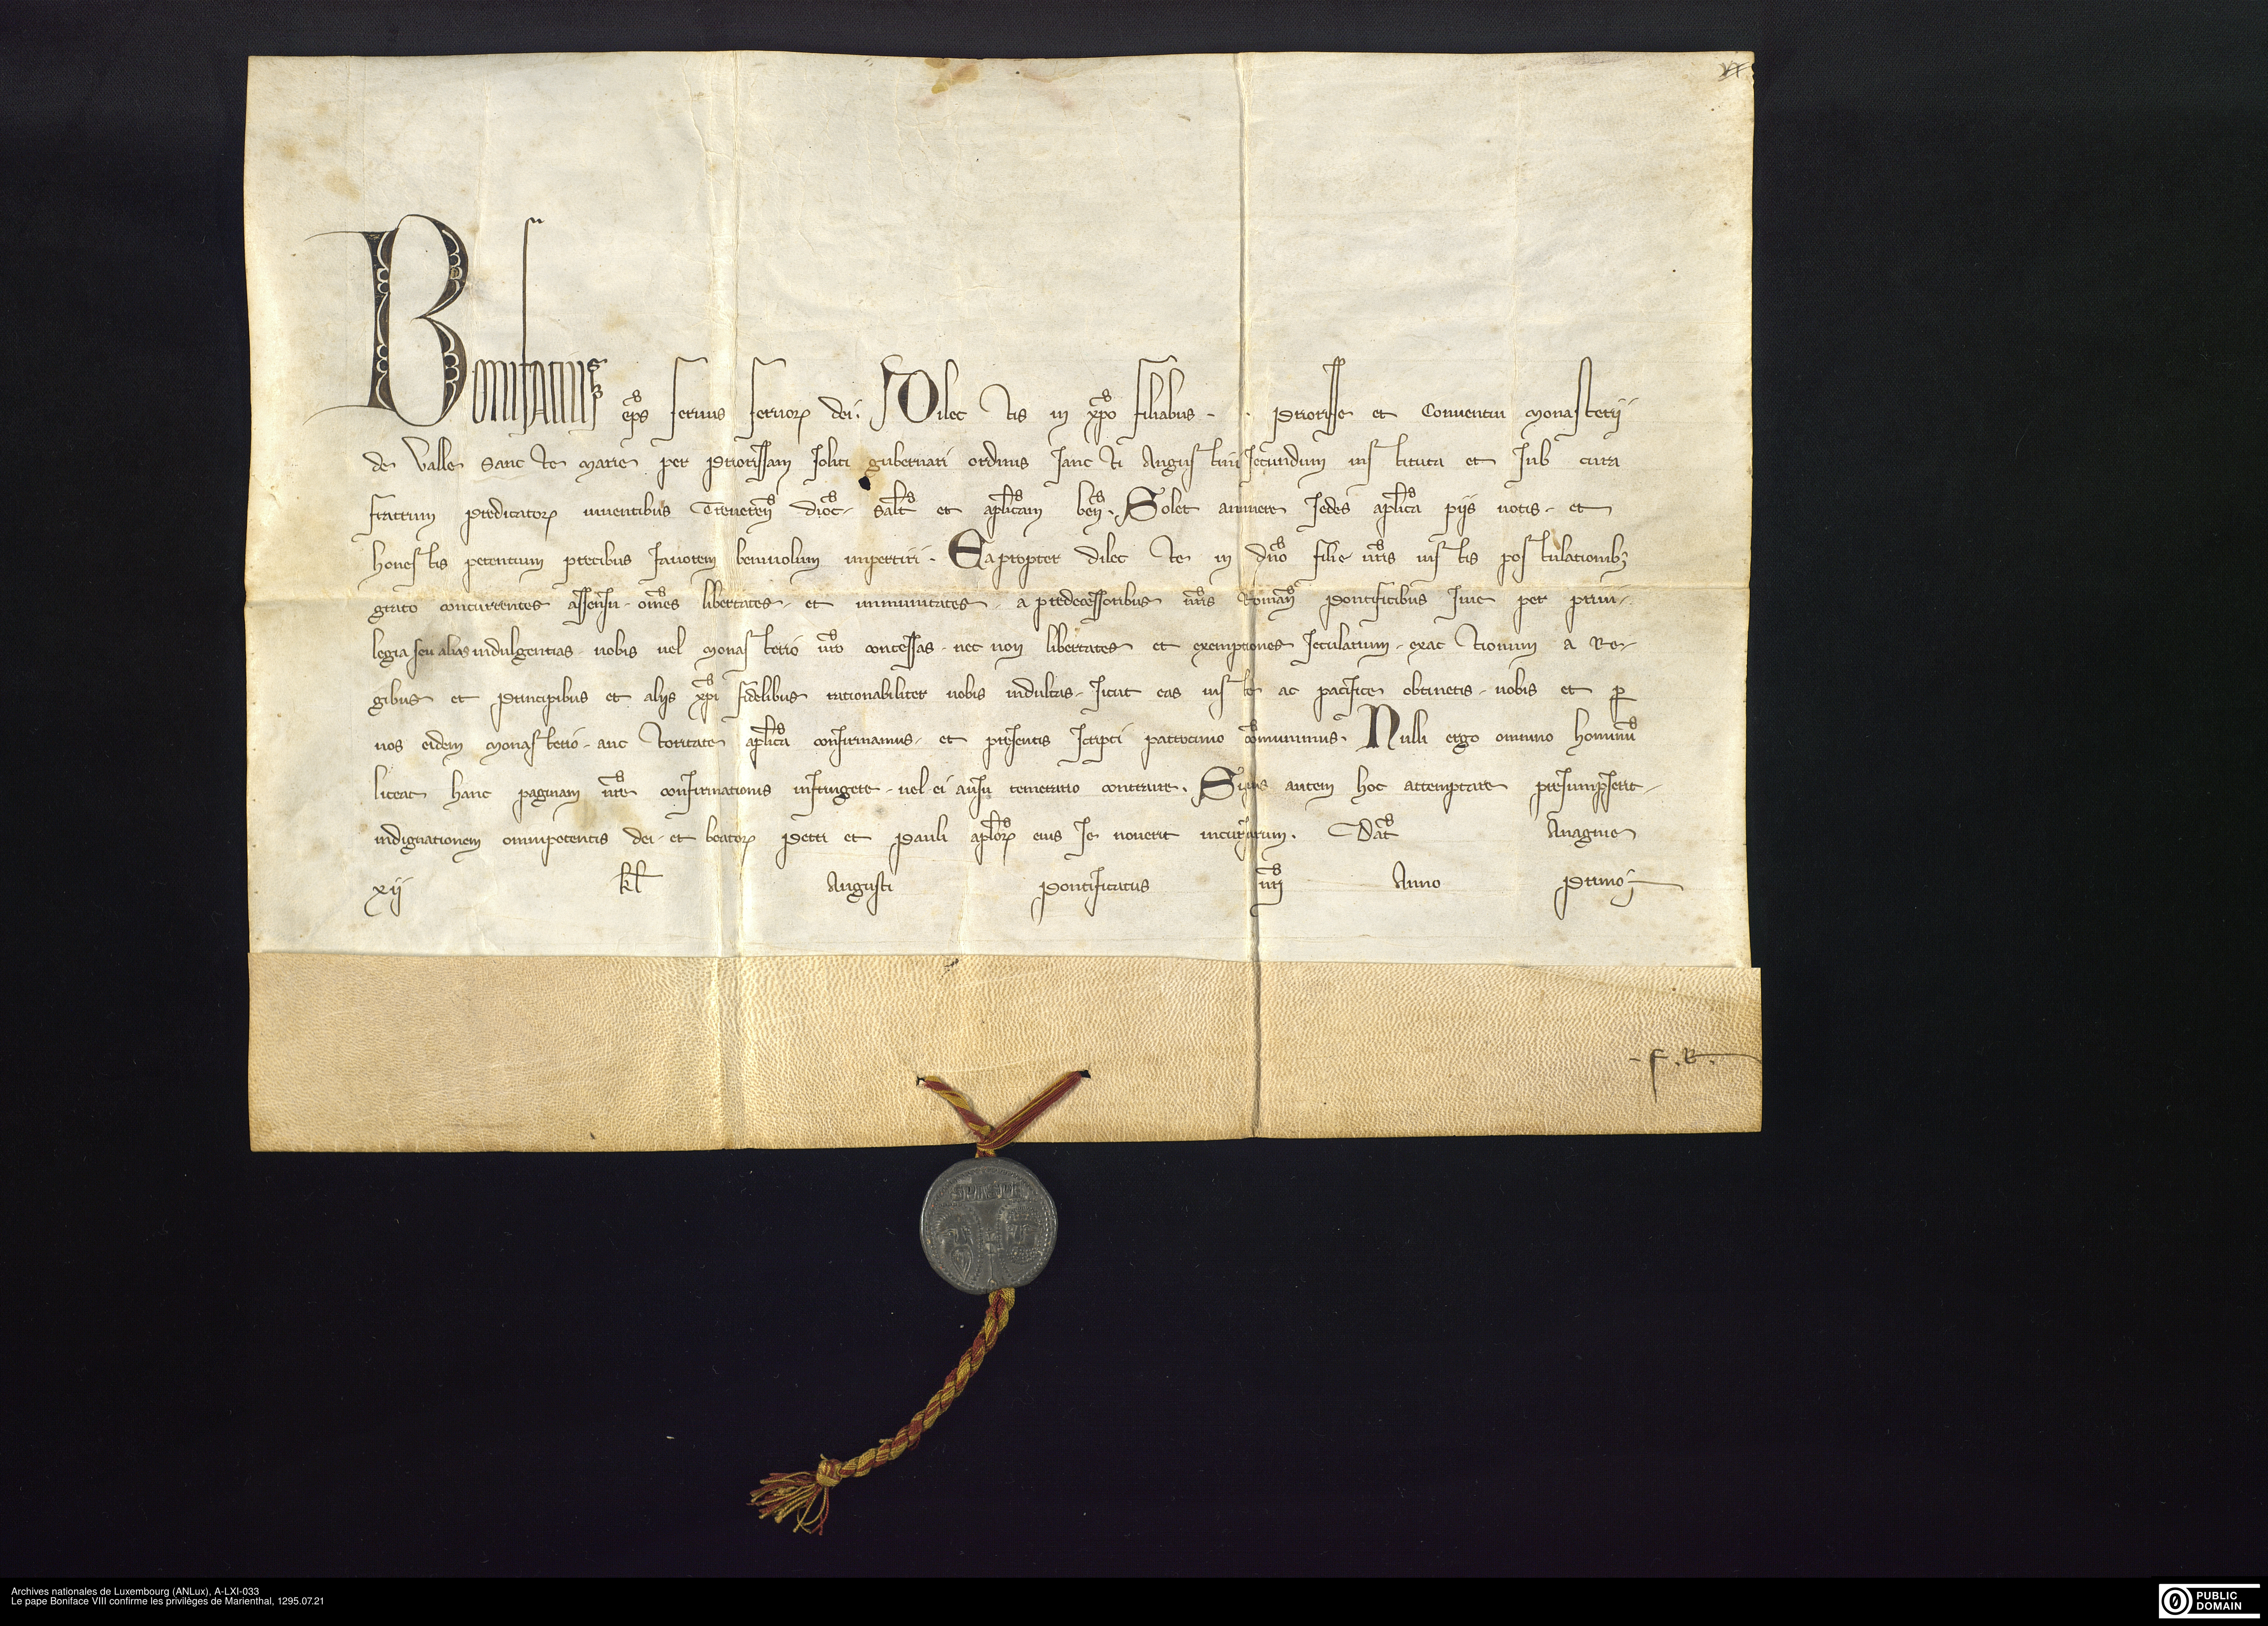 VI
Bonifatius ep̄s seruus seruoꝝ dei. Dilectis in xp̄o filiabus . . Priorisse et Conuentui monasterij
de Valle sancte marie per Priorissam soliti gubernari ordinis sancti Augustini secundum instituta et sub cura
fratrum Predicatoꝝ uiuentibus Treueren̄ dioc̄ salt̄ et ap̄licam ben̄. Solet annuere sedes ap̄lica pijs uotis, et
honestis petentium precibus fauorem beniuolum impertiri. Eapropter dilecte in dn̄o filie ur̄is iustis postulationibꝫ
grato concurrentes assensu, om̄es libertates, et immunitates, a predecessoribus nr̄is Roman̄ Pontificibus siue per priui-
legia seu alias indulgentias, uobis uel monasterio ur̄o concessas, nec non libertates et exemptiones secularium, exactionum a Re-
gibus et Principibus et alijs xp̄i fidelibus rationabiliter uobis indultas, sicut eas iuste ac pacifice obtinetis, uobis et ꝑ
uos eidem monasterio, auctoritate ap̄lica confirmamus, et presentis scripti patrocinio com̄unimus. Nulli ergo omnino hominū
liceat hanc paginam nr̄e confirmationis infringere, uel ei ausu temerario contraire. Siquis autem hoc attemptare presumpserit,
indignationem omnipotentis dei, et beatoꝝ Petri et Pauli ap̄loꝝ eius se nouerit incursurum. Dat̄ Anagnie
xij kl̄ Augusti Pontificatus nr̄i Anno Primo
. F . R .
SPASPE
Archives nationales de Luxembourg (ANLux), A-LXI-033
Le pape Boniface VIII confirme les privilèges de Marienthal, 1295.07.21
PUBLIC
DOMAIN